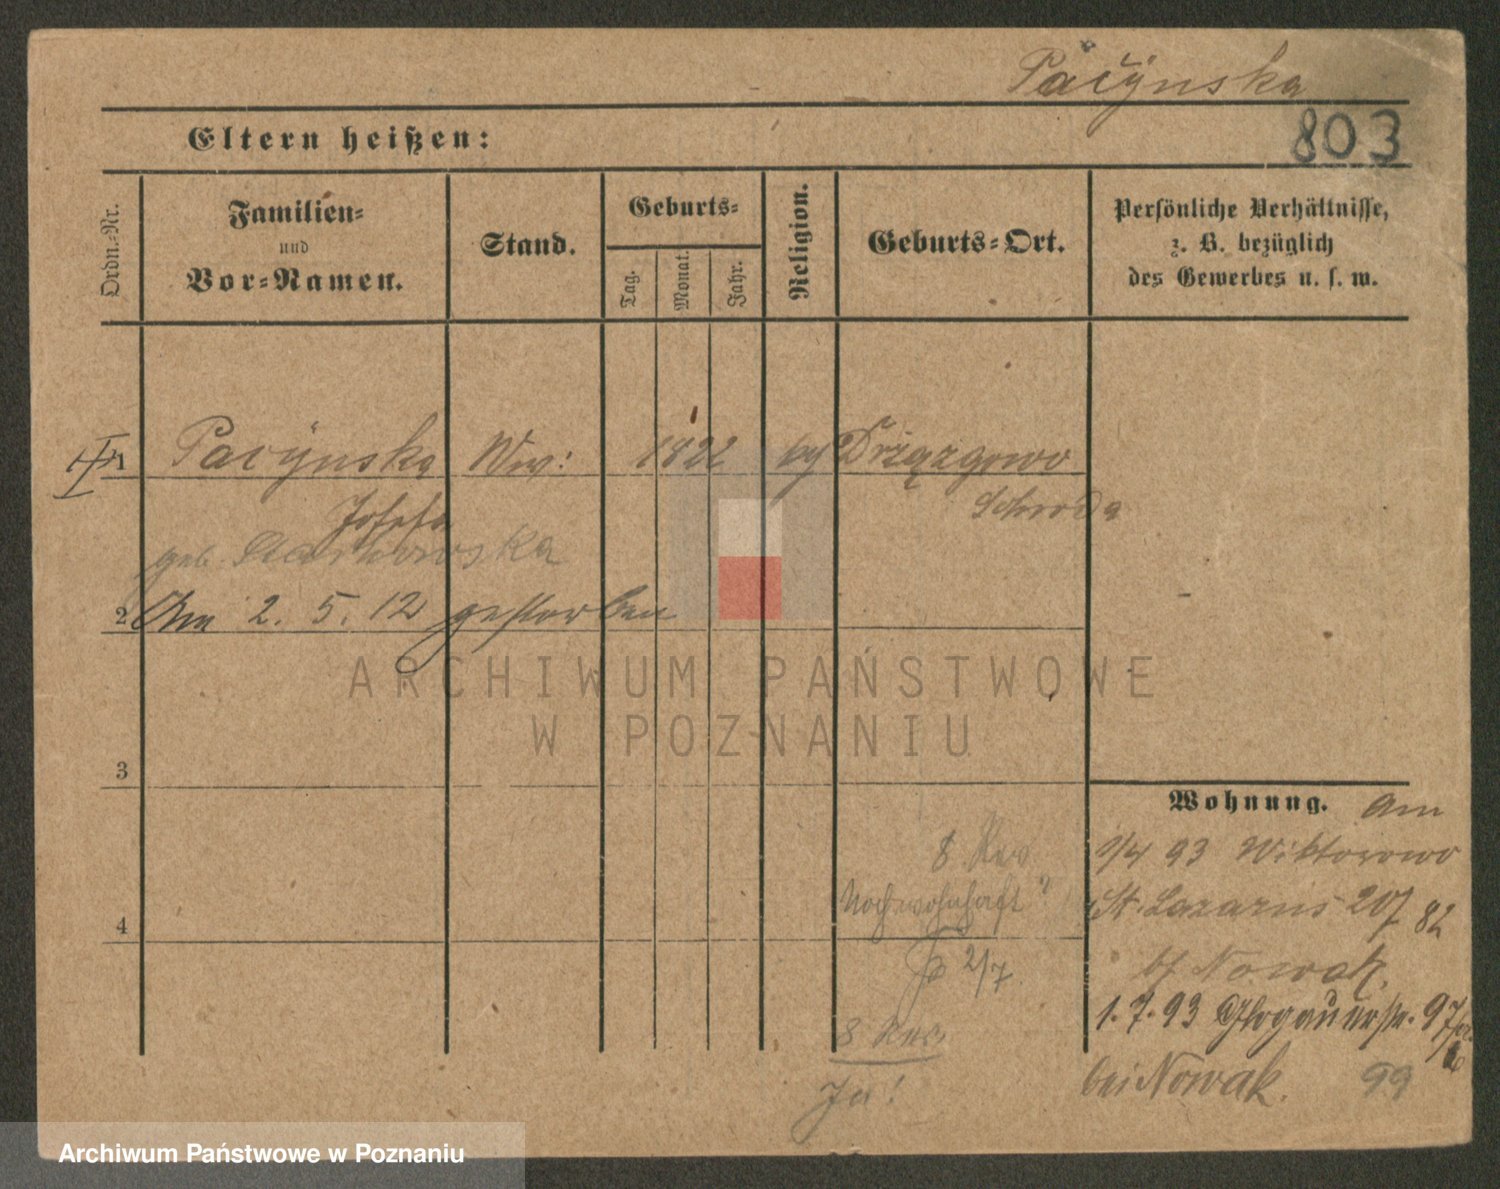 Pacÿnska
803
Eltern heißen:
Ordn.-Nr.
Familien-
und
Vor-Namen.
Stand.
Geburts-
Tag.
Monat.
Jahr.
Religion.
Geburts-Ort.
Persönliche Verhältnisse,
z. B. bezüglich
des Gewerbes u. s. w.
Pacÿnska Ww: 1822 Drzązgowo
Josefa Schroda
geb.
2 Am 2. 5. 12 gestorben
ARCHIWUM PAŃSTWOWE
W POZNANIU
3
Wohnung. am
1/4 93 Wiktorowo
8 Rev
Noch wohnhaft?
St. Lazarus 207 82
4
2/7.
b/ Nowak.
1. 7. 93 Glogauerstr. 97
8 Rev.
bei Nowak. 99
Ja!
Archiwum Państwowe w Poznaniu